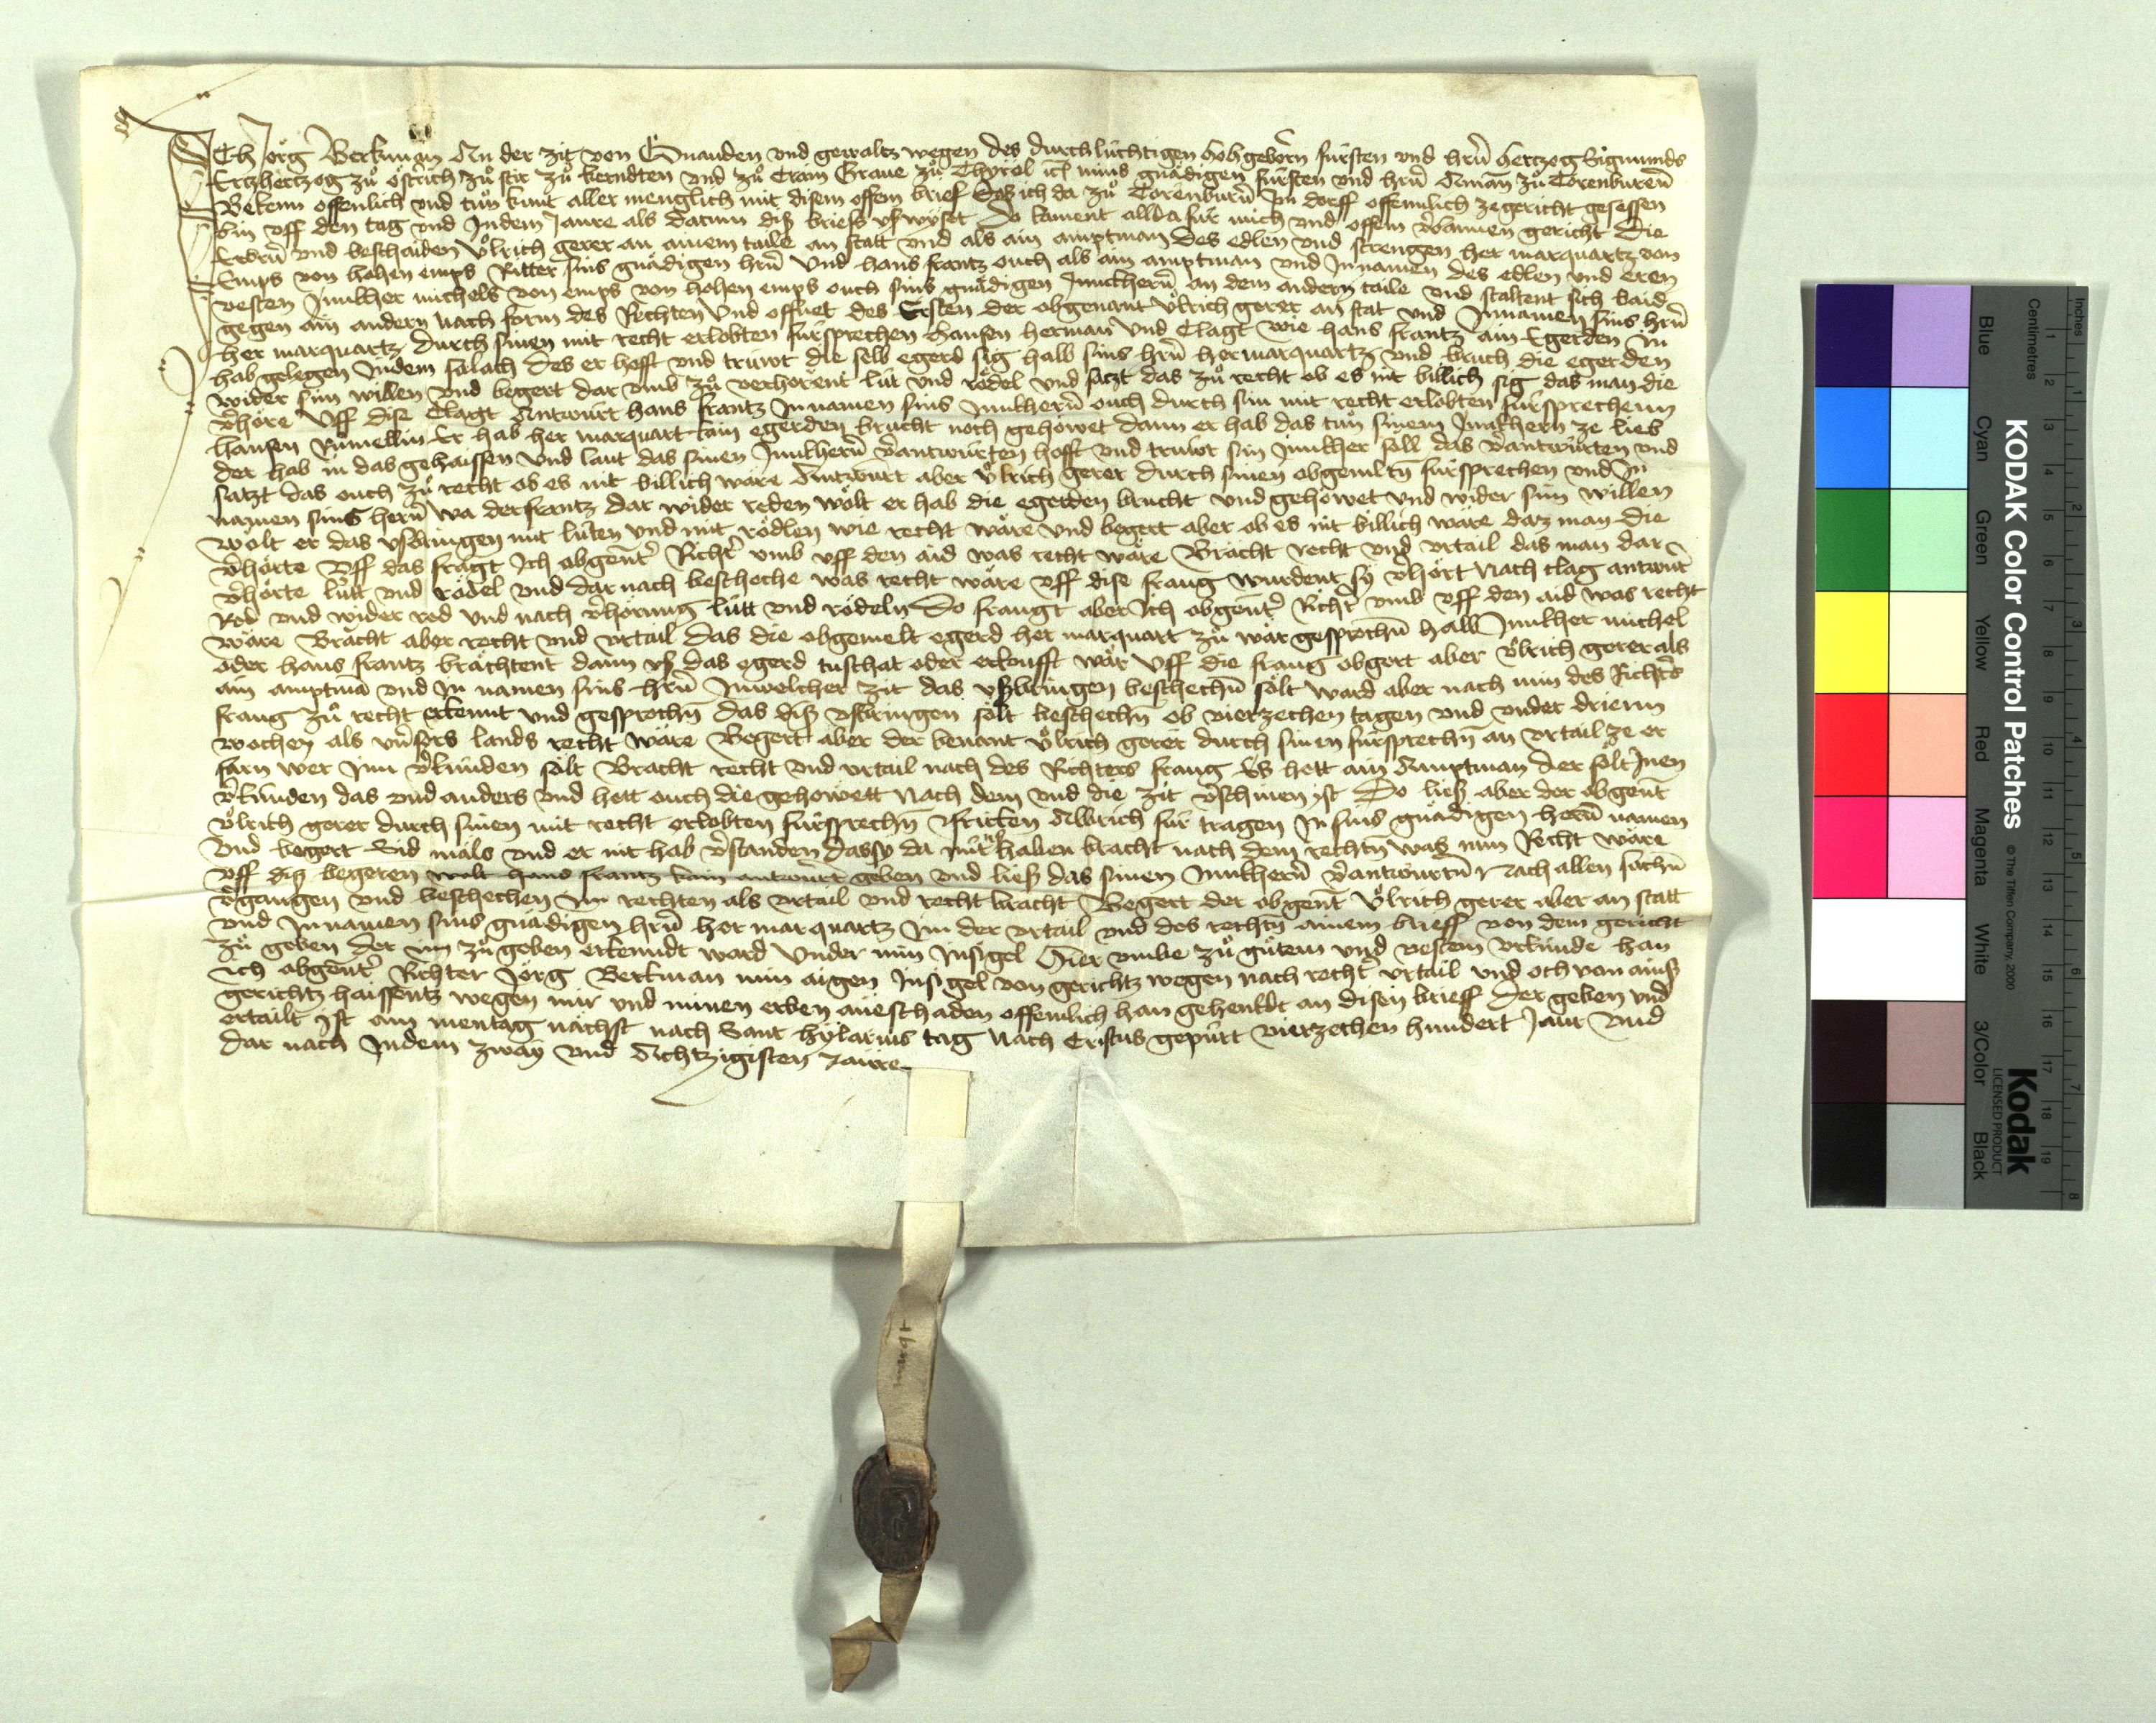 Ich Jörg Berkman An der zit von Gnauden und gewaltz wegen des durchlüchtigen Hochgebornn fürsten und hrn̄ Hertzog Sigmunds
Ertzhertzog zů östrich zů stir zů kernndten und zů Crain Graue zů Thyrol ꝛc mins gnädigen fürsten und hrn̄ Amān zů Torenburen̄
Bekenn offenlich und tůn kunt aller menglich mit disem offem brief Das ich da zů Torenburen̄ Im dorff offennlich ze gericht gesessen
bin uff den tag und Indem Jaure als datum diß briefs uſwyset Do kament allda für mich und offem v̄bannen gericht Die
Erbern̄ und beschaiden Ůlrich gerer an ainem taile an statt und als ain amptman des edlen und strengen her marquartz von
Emps von hohen emps Ritter sins gnädigen hrn̄ Und hans frantz ouch als ain amptman und Innamen des edlen und eren
vesten Junkher michels von emps von hohen emps ouch sins gnädigen Junckhern̄ an dem andern taile und staltent sich baid
gegen ain andern nach form des Rechten Und offnet des Ersten der obgenant Ůlrich gerer an stat und Innamen sins hrn̄
her marquartz durch sinen mit recht erlobten fürsprechen Hansen herman Und Clagt wie hans frantz ain Egerden In
hab gelegen Indem salach des er hofft und trüwt die selb egerd sig halb sins hrn̄ her marquartz und bruch die egerden
wider sin willen und begert dar umb zů verhörent lüt und rödel und satzt das zů recht ob es nit billich sig das man die
v̄höre Uff dise Clagt Antwurt hans frantz Innamen sins Junkhern̄ ouch durch sin mit recht erlobten fürsprechenn
hansen Rümellin Er hab her marquart kain egerden brucht noch gehöwet dann er hab das tůn sinem Junkhern ze lieb
der hab in das gehaissen Und laut das sinen Junkhern̄ v̄antwürten hofft und trüwt sin Junkher söll das v̄antwürten und
satzt das ouch zů recht ob es nit billich wäre Antwurt aber Ůlrich gerer durch sinen obgemltn fürsprechen und In
namen sins hern̄ wa der frantz dar wider reden wölt er hab die egerden brucht und gehöwet und wider sin willen
wölt er das uſbringen mit lüten und mit rödlen wie recht wäre und begert aber ob es nit billich wäre daz man die
v̄hörte Uff das fragt Ich obgent̄ Richt̄ umb uff den aid was recht wäre Bracht recht und urtail das man dar
v̄hörte lütt und rödel und dar nach beschehe was recht wäre Uff dise fraug wurdent sÿ v̄hört nach clag antwurt
Red und wider red und nach v̄hörung lütt und rödeln Do fraugt aber Ich obgent̄ Richt̄ umb uff den aid was recht
wäre Bracht aber recht und urtail das die obgemelt egerd her marquart zů wär gesprochn̄ halb Junkher michel
oder hans frantz brächtent dann uß das egerd tuschat oder erkoufft wär Uff die fraug obgert aber Ůlrich gerer als
ain amptmā und In namen sins hrn̄ Inwelcher zit das ußbringen beschechn̄ sölt ward aber nach min des Richters
fraug zů recht erkennt und gesprochn̄ das diß uſbringen sölt beschechn̄ ob vierzechen tagen und under drienn
wochen als unsers lands recht wäre Begert aber der benant Ůlrich gerer durch sinen fürsprechn̄ an urtail ze er
farn wer Im v̄künden sölt Bracht recht und urtail nach des Richters fraug Es hett ain Amptman der sölt Inen
v̄künden das und anders und hett ouch die gehowett Nach dem und die zit v̄schinen yst Do ließ aber der obgent̄
Ůlrich gerer durch sinen mit recht erlobten fürsprechn fricken Albrich für tragen In sins gnädigen hern̄ namen
Und begert Sid mäls und er nit hab v̄standen das sy da nüt haben bracht nach dem rechtn̄ was nun Recht wäre
Uff diß begeren wolt hans frantz kain antwurt geben und ließ das sinen Junkhern̄ v̄antwürtn̄ Nach allen sachn̄
v̄gangen und beschechen Im rechten als urtail und recht bracht Begert der obgent̄ Ůlrich gerer aber an statt
und Innamen sins gnädigen hrn̄ her marquartz Im der urtail und des rechtn̄ ainem brieff von dem gericht
zů geben der im zů geben erkenndt ward Under min Insigel Hier umbe zů gůtem und vestem urkünde han
ich obgent̄ Richter Jörg Berkman min aigen Insigel von gerichtz wegen nach recht urtail und och von ainß
gerichtz haissentz wegen mir und minen erben ane schaden offennlich han gehenkt an disen brieff Der geben und
ertailt Ist am mentag nächst nach Sant hÿlarius tag Nach Cristus gepürt vierzechen hundert Jaur Und
dar nach Indem zwaÿ und Achtzigisten Jaure

Inches
Centimetres
KODAK Color Control Patches
© The Tiffen Company, 2000
Kodak
LICENSED PRODUCT
Blue
Cyan
Green
Yellow
Red
Magenta
White
3/Color
Black